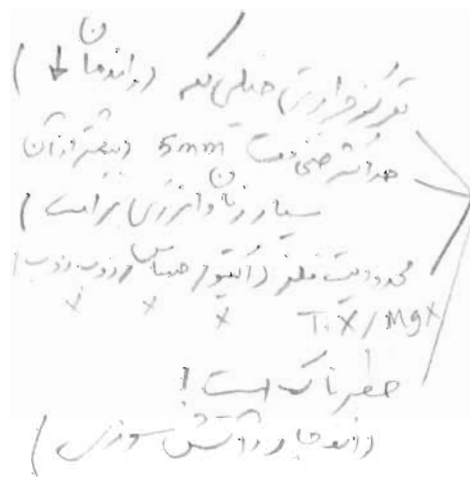 تمرکز حرارتی خیلی کم (راندمان ↓)
حداکثر ضخامت 5mm (بیشتر از آن
بسیار زمان و انرژی بر است)
محدودیت فلز (اکتیو/حساس/زودذوب)
x x x Ti x / Mg x
خطرناک است!
(انفجار و آتش سوزی)